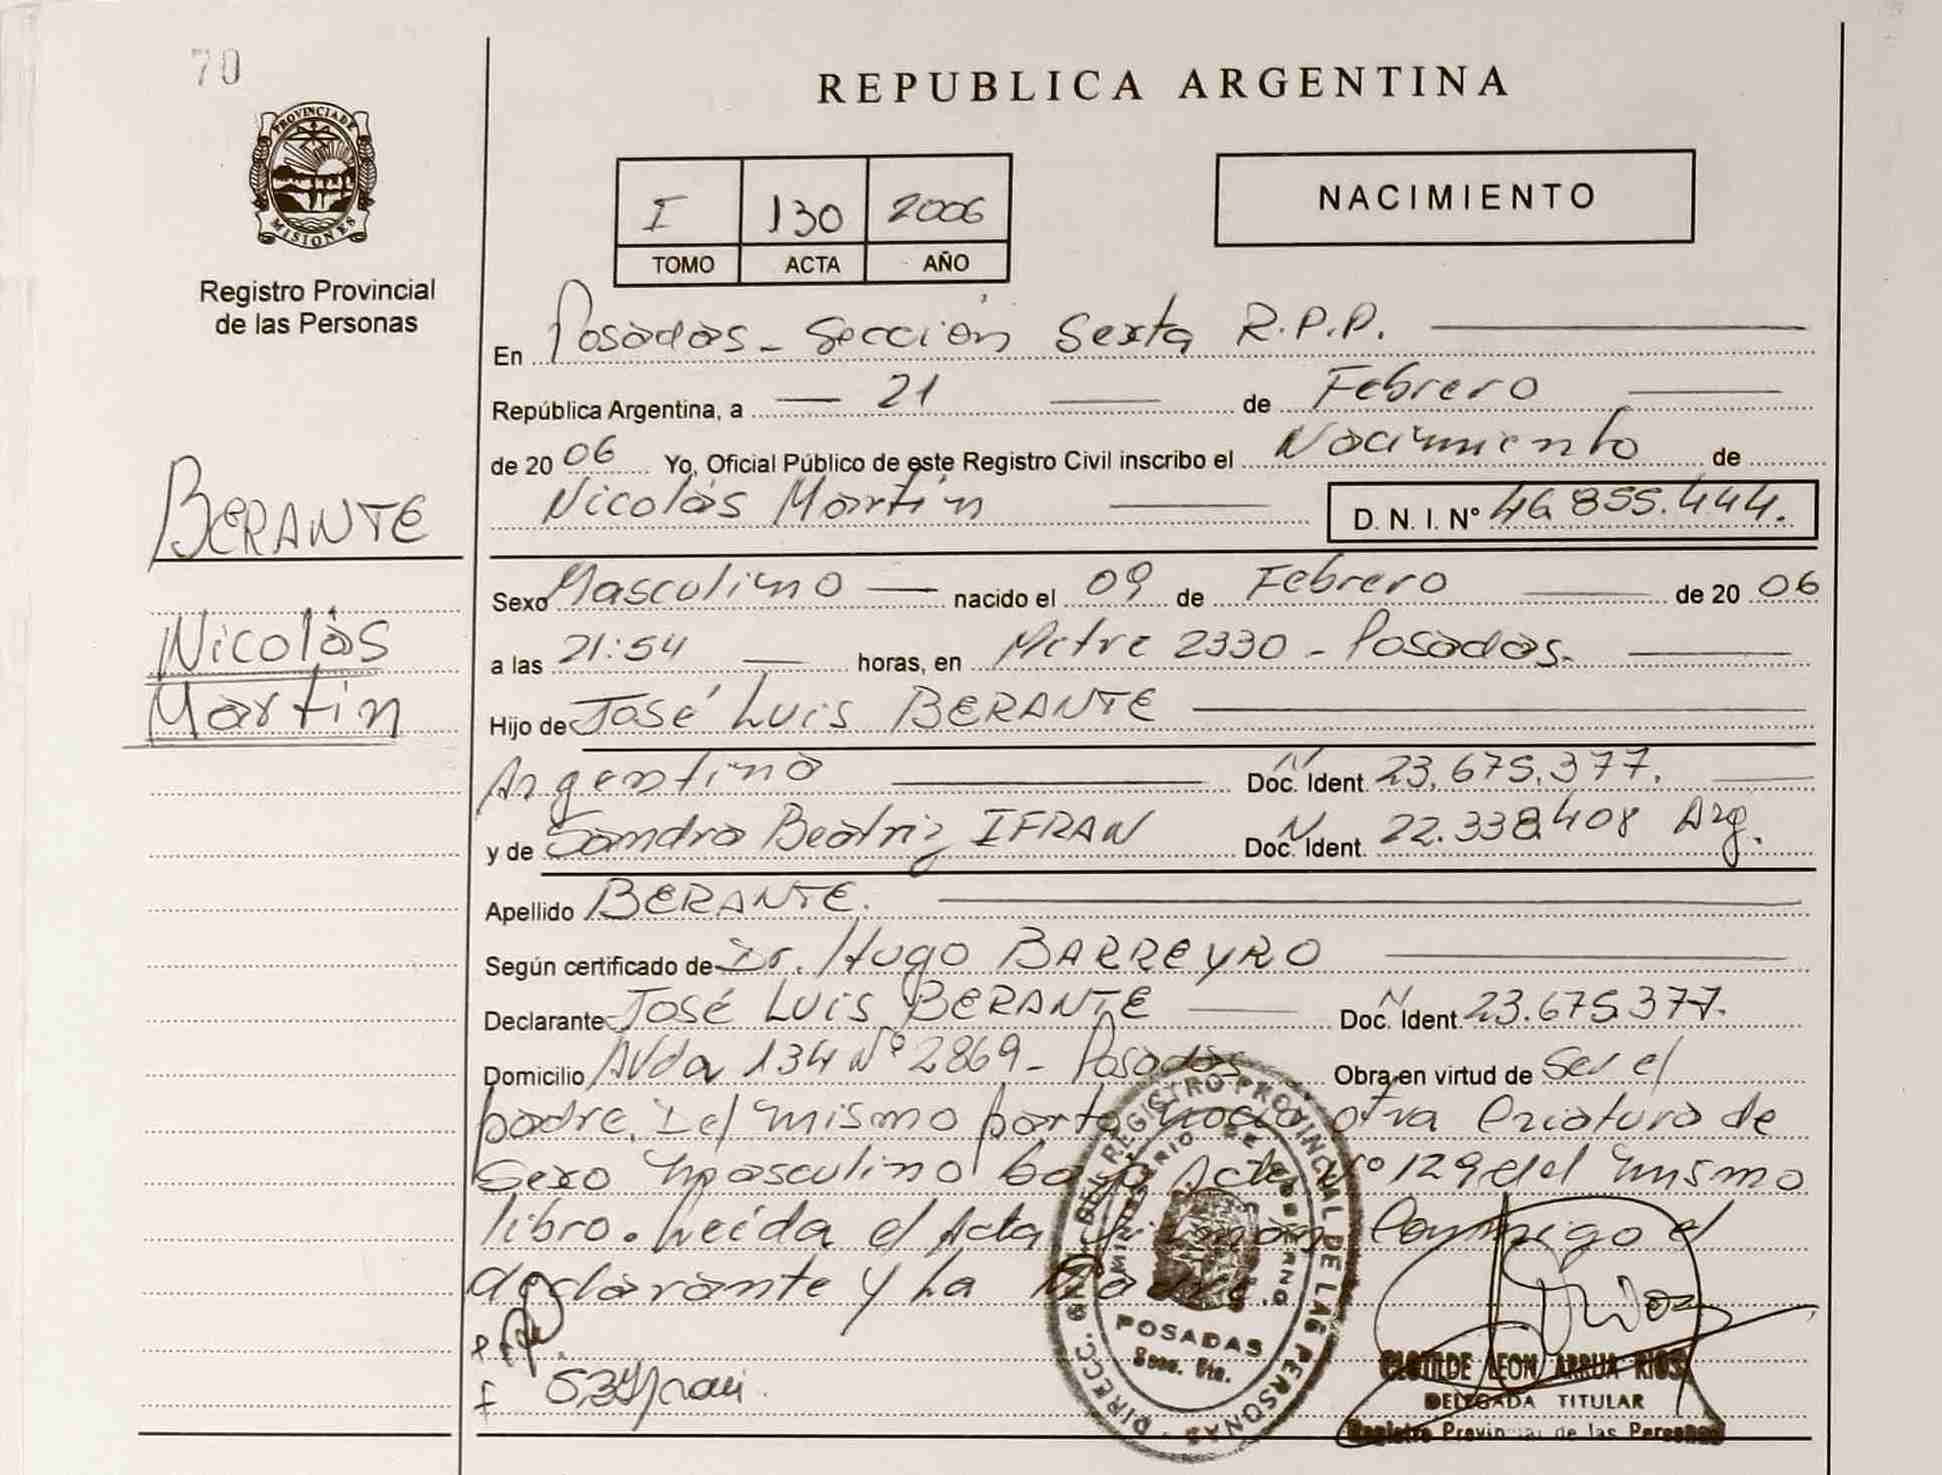 70
REPUBLICA ARGENTINA
PROVINCIA DE
MISIONES
Registro Provincial
de las Personas
I 130 2006
TOMO ACTA AÑO
NACIMIENTO
En Posadas - Sección Sexta R.P.P.
República Argentina, a 21 de Febrero
de 2006 Yo, Oficial Público de este Registro Civil inscribo el Nacimiento de
Nicolás Martín D. N. I. N° 46.855.444.
BERANTE
Nicolás
Martín
Sexo Masculino nacido el 09 de Febrero de 2006
a las 21:54 horas, en Mitre 2330 - Posadas.
Hijo de José Luis BERANTE
Argentino Doc. N Ident. 23.675.377.
y de Sandra Beatriz IFRAN Doc. N Ident. 22.338.408 Arg.
Apellido BERANTE.
Según certificado de Dr. Hugo BARREYRO
Declarante José Luis BERANTE Doc. N Ident. 23.675.377.
Domicilio Avda 134 Nº 2869 - Posadas Obra en virtud de Ser el
padre. Del mismo parto nació otra criatura de
sexo masculino bajo Acta Nº 129 del mismo
libro. Leída el Acta firman conmigo el
declarante y la Madre.
DIRECC. GRAL. DEL REGISTRO PROVINCIAL DE LAS PERSONAS
MINISTERIO DE GOBIERNO
POSADAS
Secc. 6ta.
CLOTILDE LEON ARRUA RIOS
DELEGADA TITULAR
Registro Provincial de las Personas